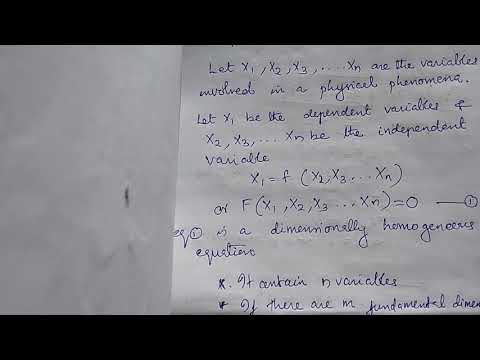 Let X1, X2, X3, ....Xn are the variables
involved in a physical phenomena.
Let X1 be the dependent variables &
X2, X3,... Xn be the independent
variable
X1 = f (X2, X3 ... Xn)
or F(X1, X2, X3 ... Xn) = 0 — ①
eq ① is a dimensionally homogeneous
equation
*. It contain n variables
* If there are m fundamental dimen